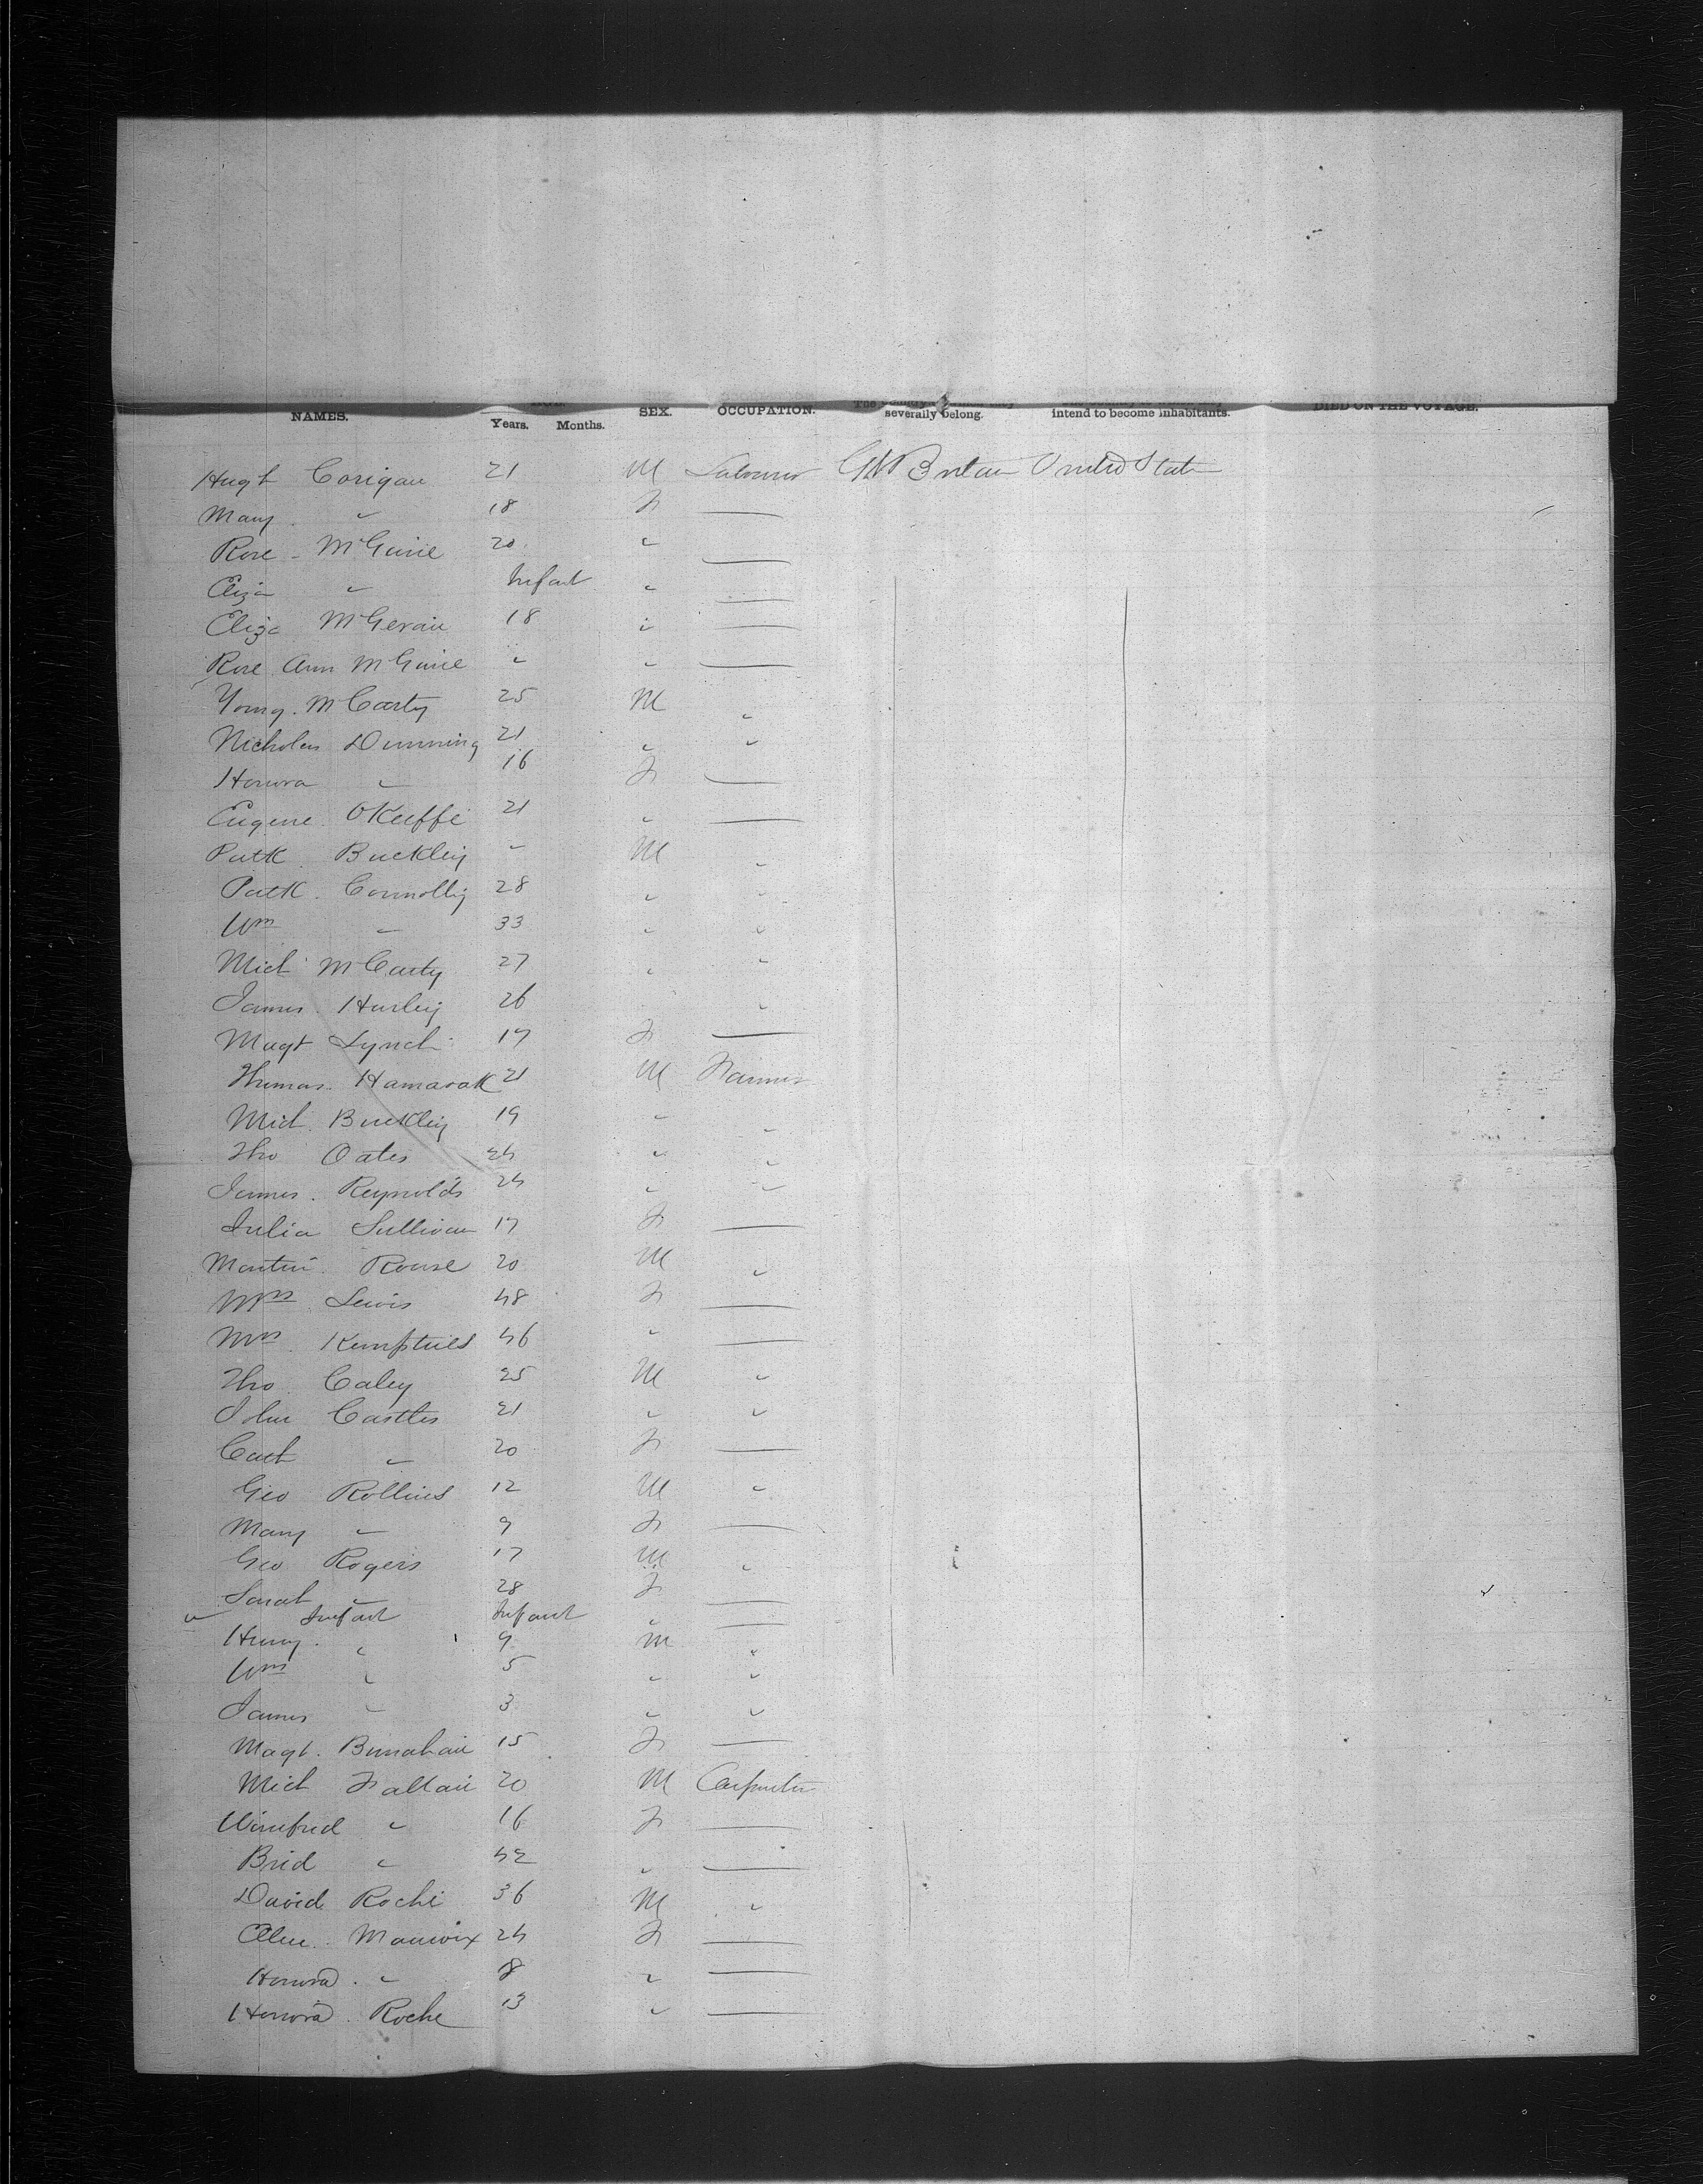 NAMES. Years. Months. SEX. OCCUPATION. severally belong. intend to become inhabitants. DIED ON THE VOYAGE.
Hugh Corigan 21 M Labourer Gt Britain United State
Mary " 18 F —
Rose McGuire 20 " —
Eliza " Infant " —
Eliza McGerain 18 " —
Rose Ann McGuire " " —
Young McCarty 25 M "
Nicholas Dunning 21 " "
Honora " 16 F —
Eugene OKeeffe 21 " —
Patk Buckley " M "
Patk Connolly 28 " "
Wm " 33 " "
Mich McCarty 27 " "
James Hurley 26 "
Magt Lynch 17 F —
Thomas 21 M Farmer
Mich Buckley 19 " "
Tho Oates 24 " "
James Reynolds 24 " "
Julia Sullivan 17 F —
Martin Rouse 20 M "
Mrs Lewis 48 F —
Mrs 46 " —
Tho Caley 25 M "
John Castles 21 " "
Cath " 20 F —
Geo Rollins 12 M "
Mary " 9 F —
Geo Rogers 17 M "
Sarah " 28 F —
" Infant Infant " —
Henry " 9 M "
Wm " 5 " "
James " 3 " "
Magt 15 F —
Mich Fallan 20 M Carpenter
Winifred " 16 F —
Brid " 42 " —
David Roche 36 M "
24 F —
Honora " 8 " —
Honora Roche 13 " —